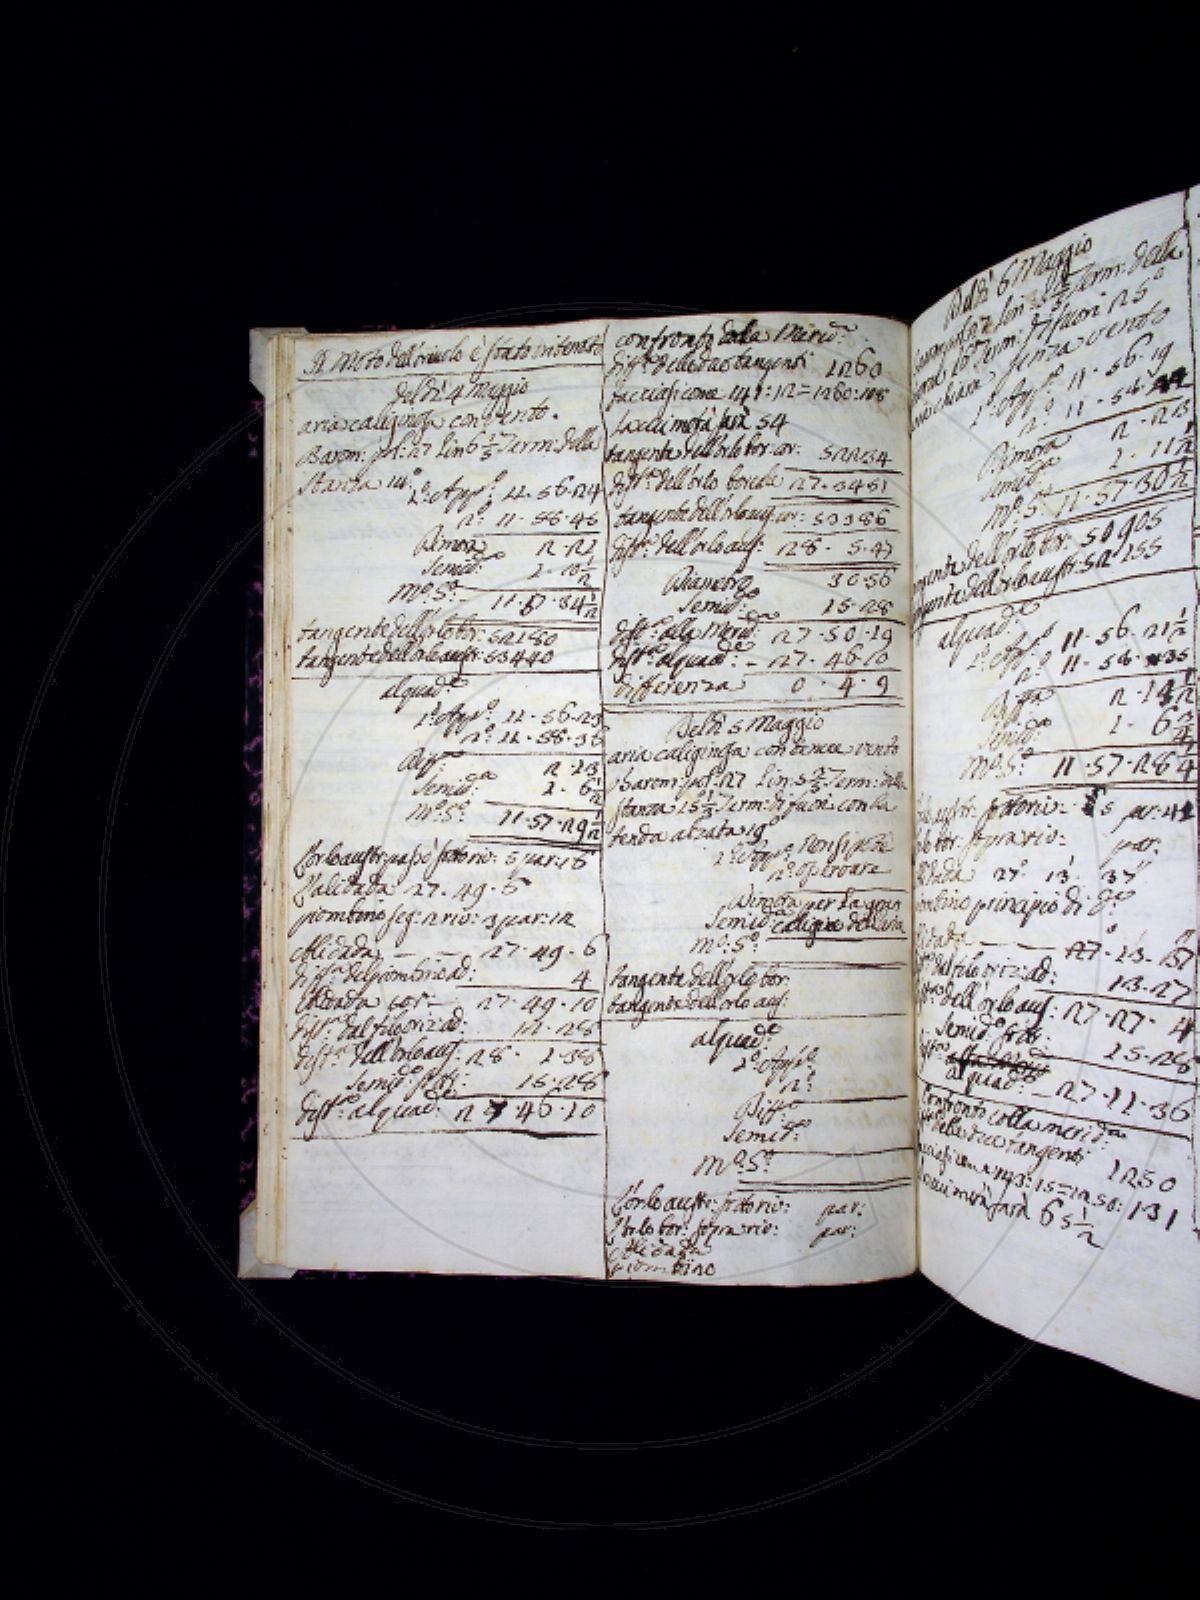 Il Moto dell'oriuolo è stato ritenato
del dì 4 Maggio
aria caliginosa con vento.
Barom: pol: 27 Lin 6 1/5 Term: della
stanza 14°
1° App° 11.56.24
2° 11.58.46
Dimora 2.22
Semid° 1.10 1/2
M° S° 11.57.34 1/2
tangente dell'orlo bor: 52180
tangente dell'orlo austr: 53440
al quad°
1° App° 11.56.23
2° 11.58.36
Diff° 2.13
Semid° 1.6 1/2
M° S° 11.57.29 1/2
L'orlo austr: passò s'orio: 5 par: 16
L'alidada 27.49.6
piombino seg: 2 rio: 3 par: 12
Alidada 27.49.6
diff° del piombi: ad: 4
Alidada cor: 27.49.10
dist° dal filo oriz ad: 12.28
dist° dell'orlo aus: 28. 1.38
Semid° 15.28
dist° al quad° 27.46.10
confronto colla Merid°
diff° delle due tangenti 1260
facciasi come 141:12=1260:108
la cui metà sarà 54
tangente dell'orlo bor: cor: 52234
dist° dell'orlo boreale 27.3451
tangente dell'orlo aus: cor: 53386
dist° dell'orlo aus: 28. 5.47
Diametro 30.56
Semid° 15.28
dist° alla Merid° 27.50.19
dist° al quad° 27.46.10
differenza 0.4.9
Del dì 5 Maggio
aria caliginosa con tenue vento
Barom: pol: 27 Lin: 5 2/5 Term: della
stanza 15° 1/2 Term: di fuori con la
tenda alzata 19°
1° App° non si potè
2° operare
Dimora per la gran
Semid° caligine dell'aria
M° S°
tangente dell'orlo bor:
tangente dell'orlo aus:
al quad°
1° App°
2°
Diff°
Semid°
M° S°
L'orlo austr: s'orio: par:
L'orlo bor: sopra rio: par:
Alidada
Piombino
Del dì 6 Maggio
Term: della
Term: di fuori 15°
senza vento
1° App° 11.56.19
2° 11.58.
Dimora 2.23
Semid° 1.11 1/2
M° S° 11.57.30 1/2
tangente dell'orlo bor: 50905
tangente dell'orlo austr: 52155
al quad°
1° App° 11.56.21 1/2
2° 11.58.35
Diff°
Semid° 1.6 3/4
M° S° 11.57.28 1/4
s'orio: 5 par: 41
sopra rio: par:
27° 13' 37"
piombino principio di
27.13.37
dal filo oriz: ad: 13.27
dell'orlo aus: 27.27.4
Semid° 15.28
al quad° 27.11.36
Confronto colla merid°
delle due tangenti 1250
143:15=1250:131
metà sarà 65 1/2